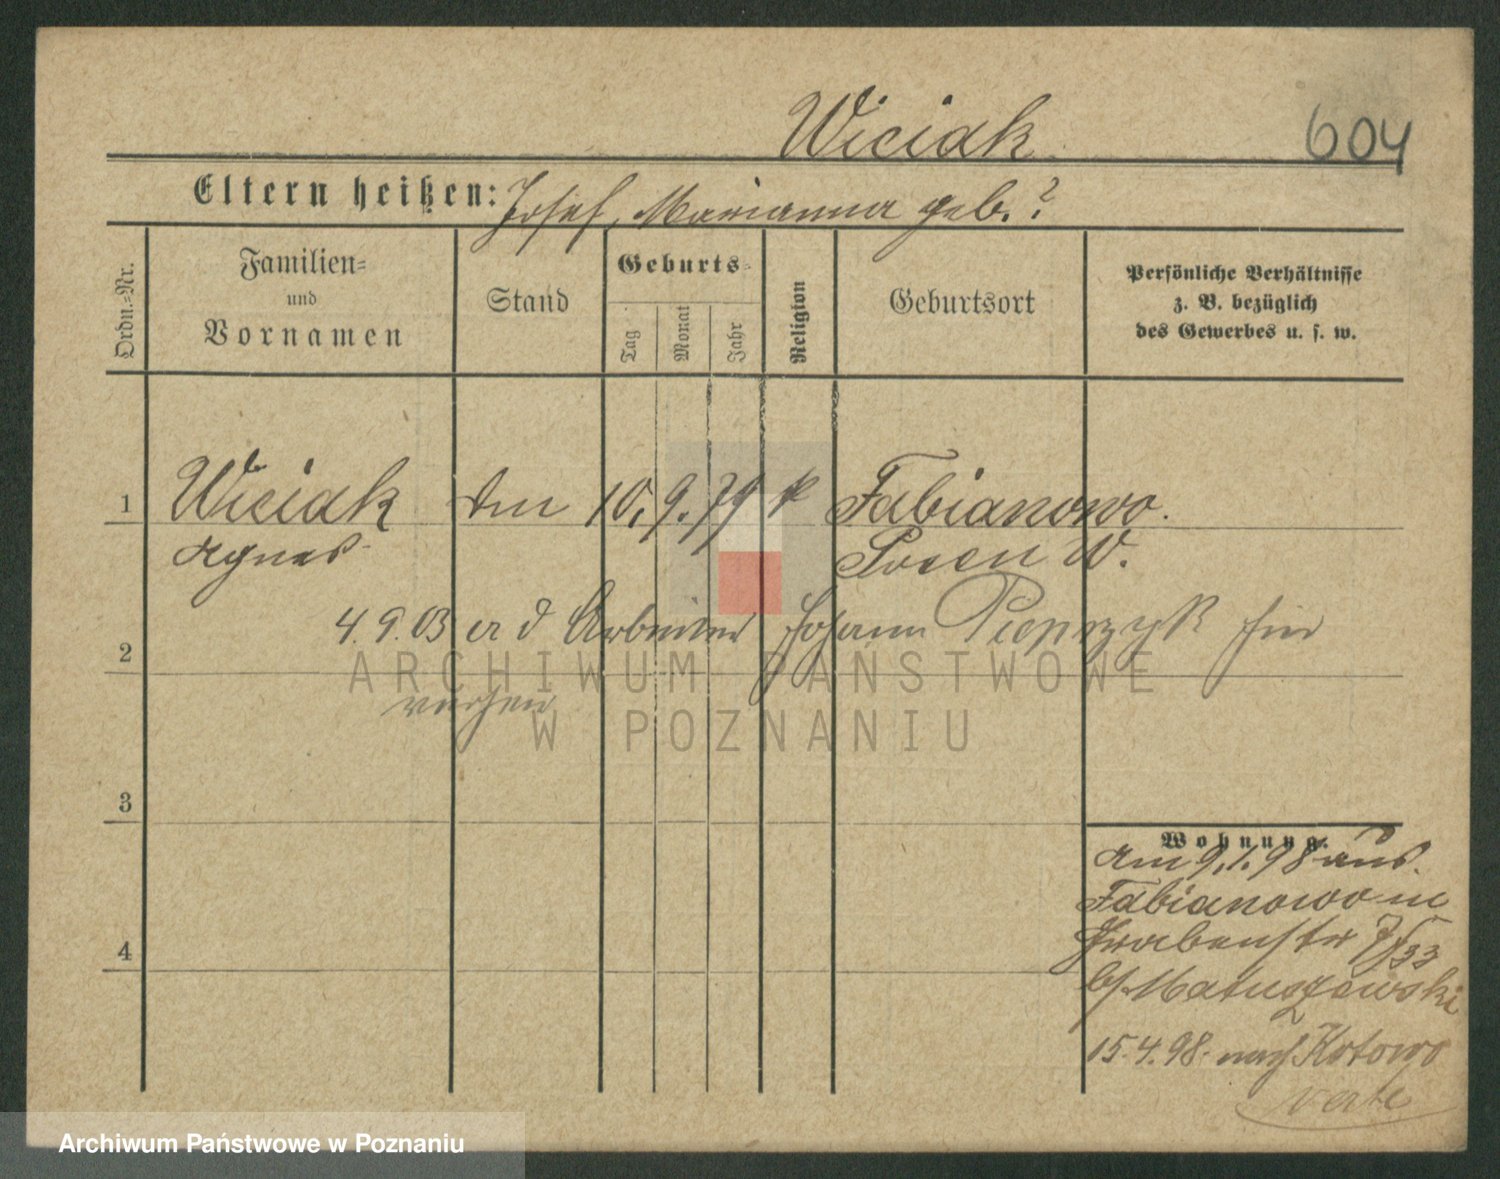 Wiciak 604
Eltern heißen: Josef, Marianna geb. ?
Ordn.=Nr.
Familien=
und
Vornamen
Stand
Geburts=
Tag
Monat
Jahr
Religion
Geburtsort
Persönliche Verhältnisse
z. B. bezüglich
des Gewerbes u. s. w.
1 Wiciak 10. 9. 79 k Fabianowo.
Agnes Posen W.
4. 9. 03 Arbeiter Johann Pieprzyk hier
2
ARCHIWUM PAŃSTWOWE
W POZNANIU
3
Wohnung.
Am 9.1.98 aus
Fabianowo in
Grabenstr 7/33
b/ Matuszewski
4
15.4.98. nach Kotowo
verte
Archiwum Państwowe w Poznaniu